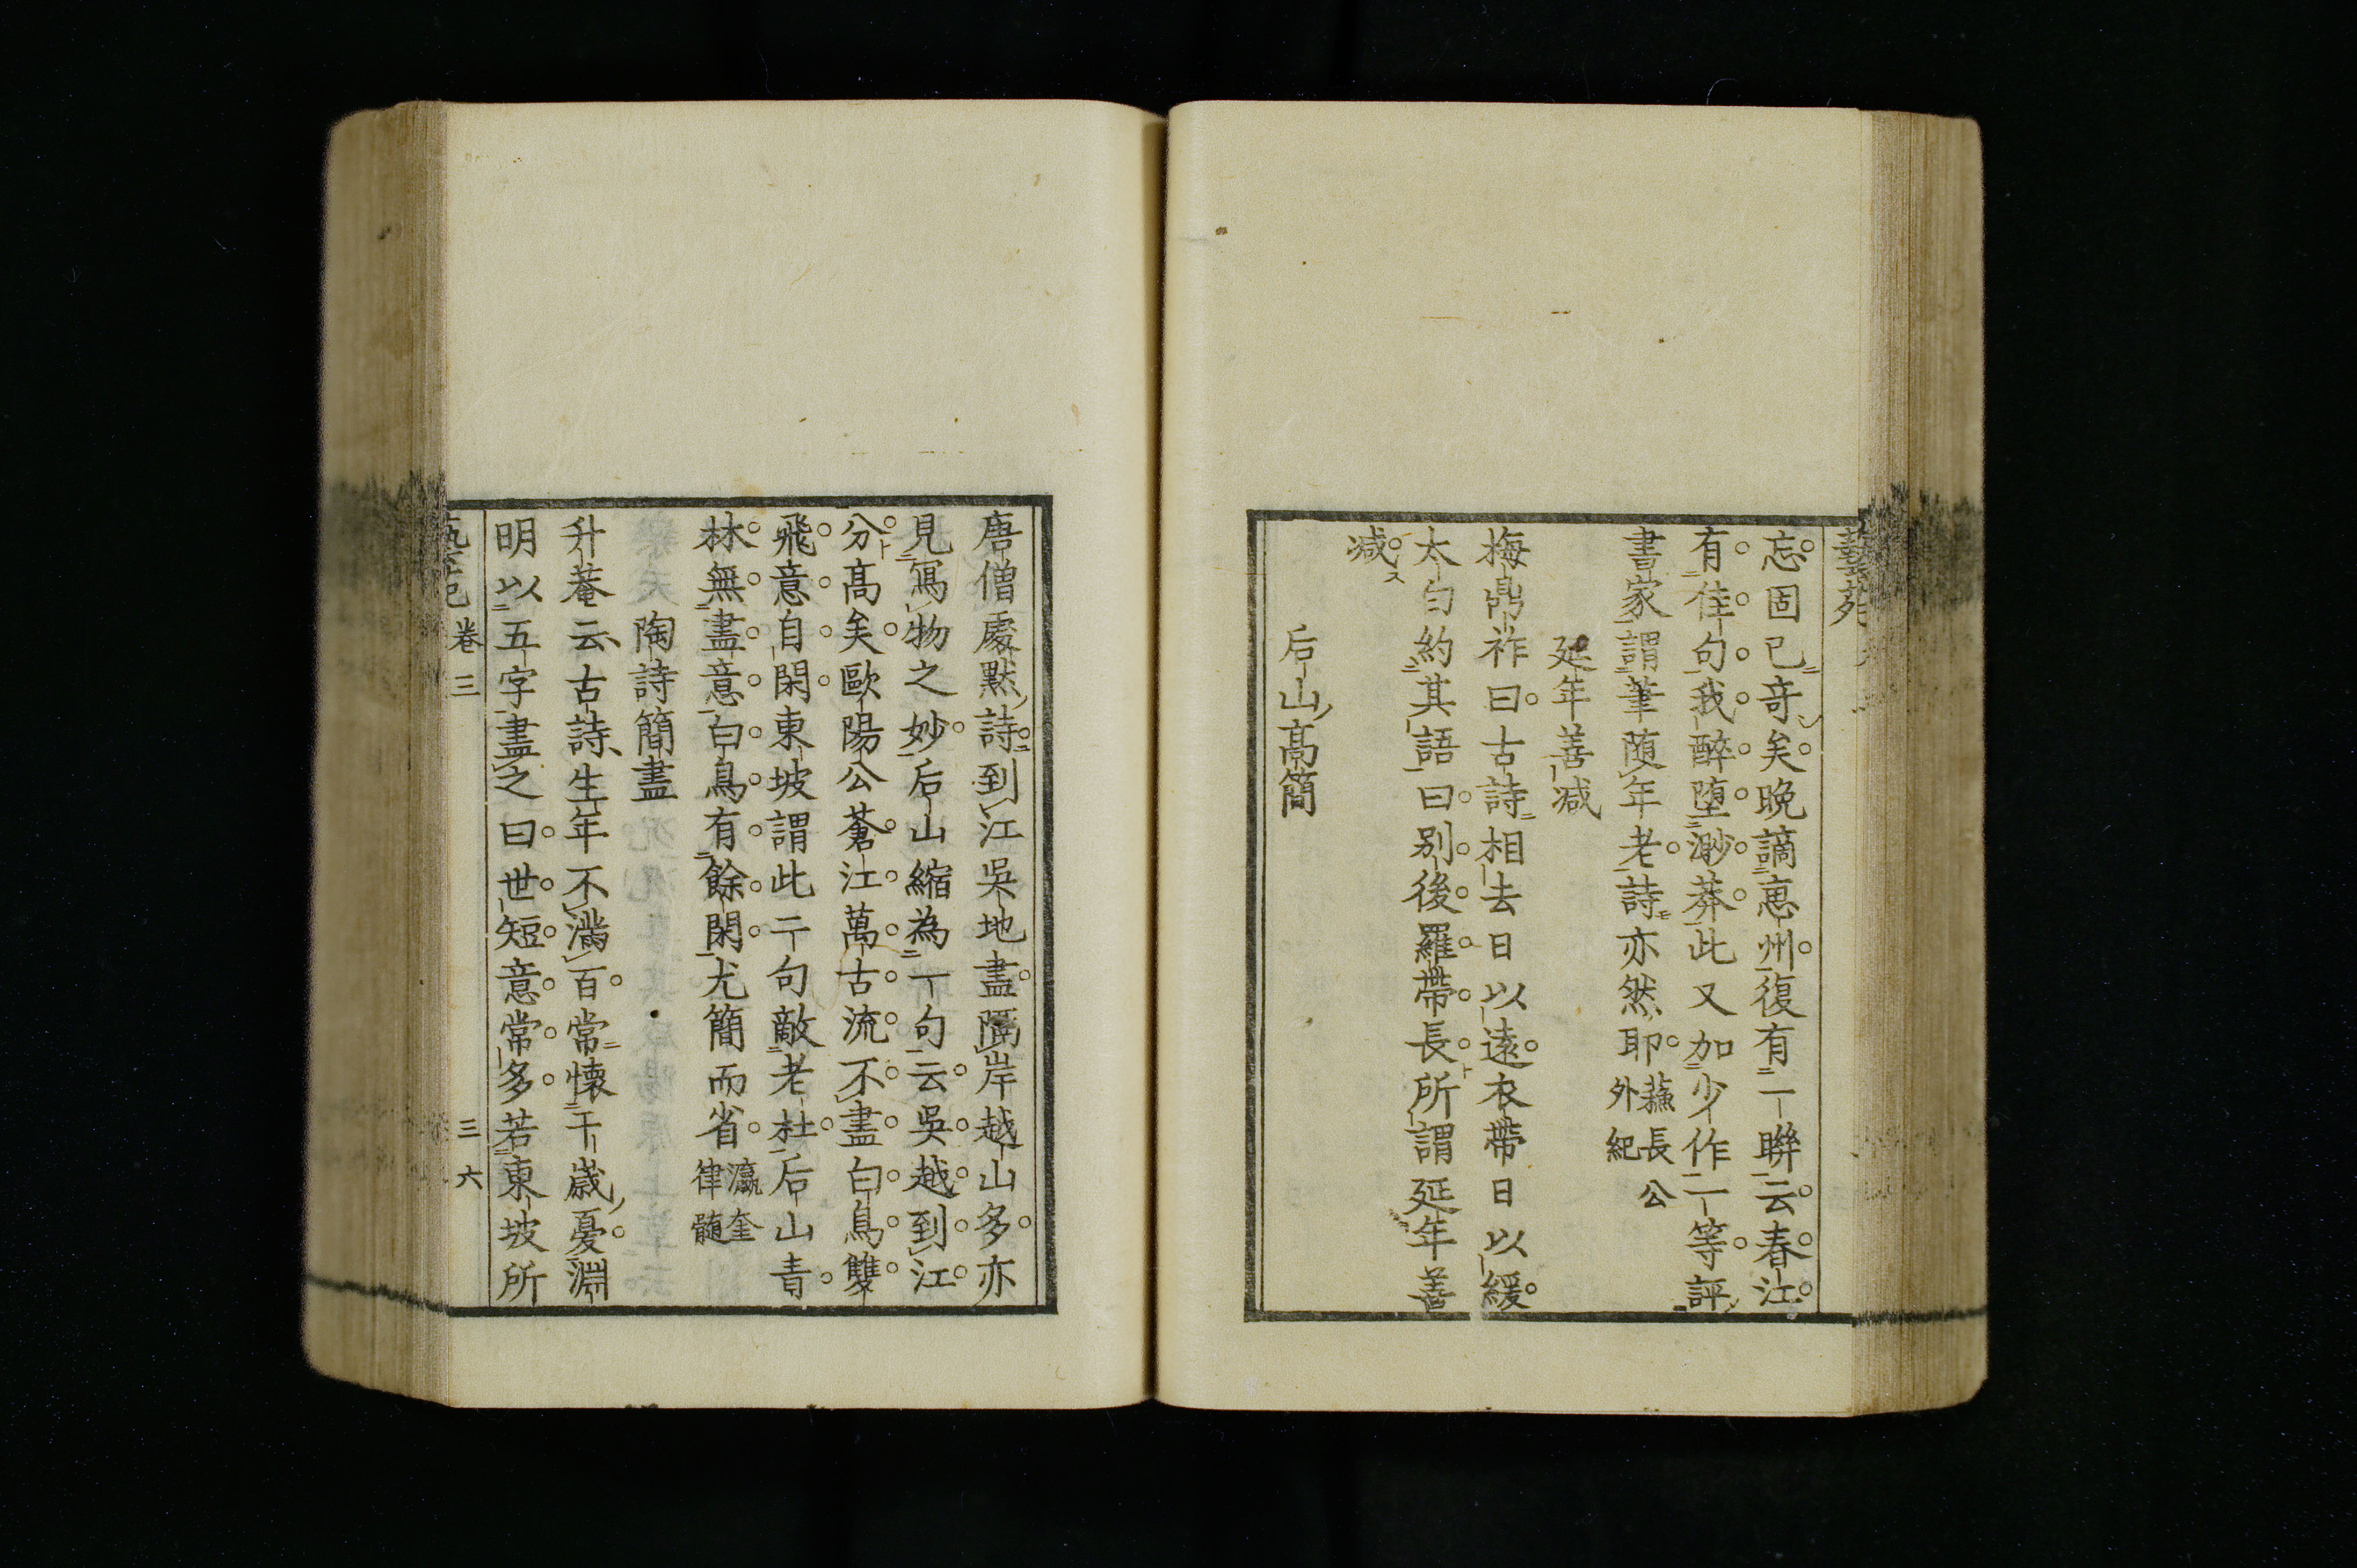 藝苑
忘固已奇矣晩謫惠州復有一聯云春江
有佳句我醉堕渺莽此又加少作一等評
書家謂筆随年老詩亦然耶蘓長公
外紀
延年善减
梅鼎祚曰古詩相去日以遠衣帶日以緩
太白約其語曰别後羅帶長所謂延年善
减
后山高簡
唐僧處默詩到江吳地盡隔岸越山多亦
見寫物之妙后山縮為一句云吳越到江
分高矣歐陽公蒼江萬古流不盡白鳥雙
飛意自閑東坡謂此二句敵老杜后山青
林無盡意白鳥有餘閑尤簡而省瀛奎
律髓
陶詩簡盡
升菴云古詩生年不滿百常懷千歲憂淵
明以五字盡之曰世短意常多若東坡所
藝苑 卷三 三六